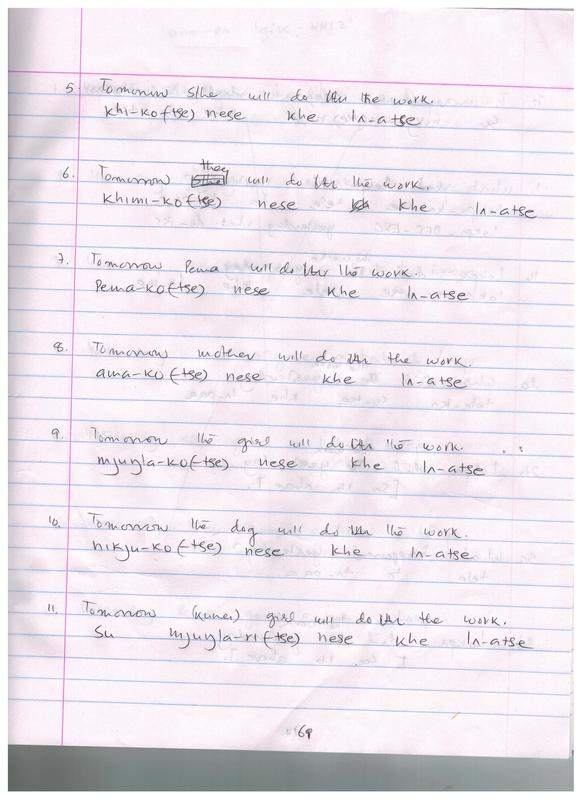 5. Tomorrow S/he will do the work.
khi-ko(-tse) nese khe ln-atse
they
6. Tomorrow will do the work.
khimi-ko(-tse) nese khe ln-atse
7. Tomorrow Pema will do the work.
Pema-ko(-tse) nese khe ln-atse
8. Tomorrow mother will do the work.
ama-ko(-tse) nese khe ln-atse
9. Tomorrow the girl will do the work.
mjuŋla-ko(-tse) nese khe ln-atse
10. Tomorrow the dog will do the work.
nikju-ko(-tse) nese khe ln-atse
11. Tomorrow girl will do the work.
su mjuŋla-ri(-tse) nese khe ln-atse
69